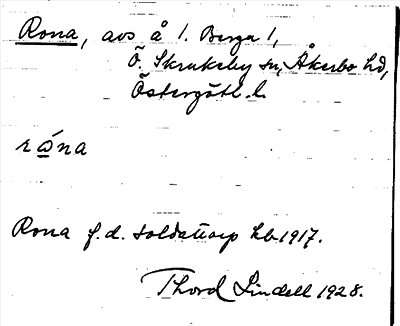 Rona, avs å l. Berga 1,
Ö. Skrukeby sn, Åkerbo hd,
Östergötl. l.
rώna
Rona f.d. soldattorp hb 1917.
Thord Lindell 1928.